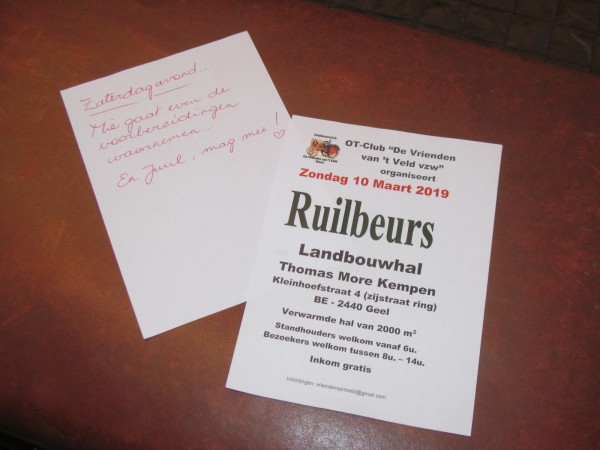 Zaterdagavond..
Mie gaat even de
voorbereidingen
waarnemen..
En Juul, mag mee!
OT-Club "De Vrienden
van 't Veld vzw"
organiseert
Zondag 10 Maart 2019
Ruilbeurs
Landbouwhal
Thomas More Kempen
Kleinhoefstraat 4 (zijstraat ring)
BE - 2440 Geel
Verwarmde hal van 2000 m²
Standhouders welkom vanaf 6u.
Bezoekers welkom tussen 8u. – 14u.
Inkom gratis
Inlichtingen: